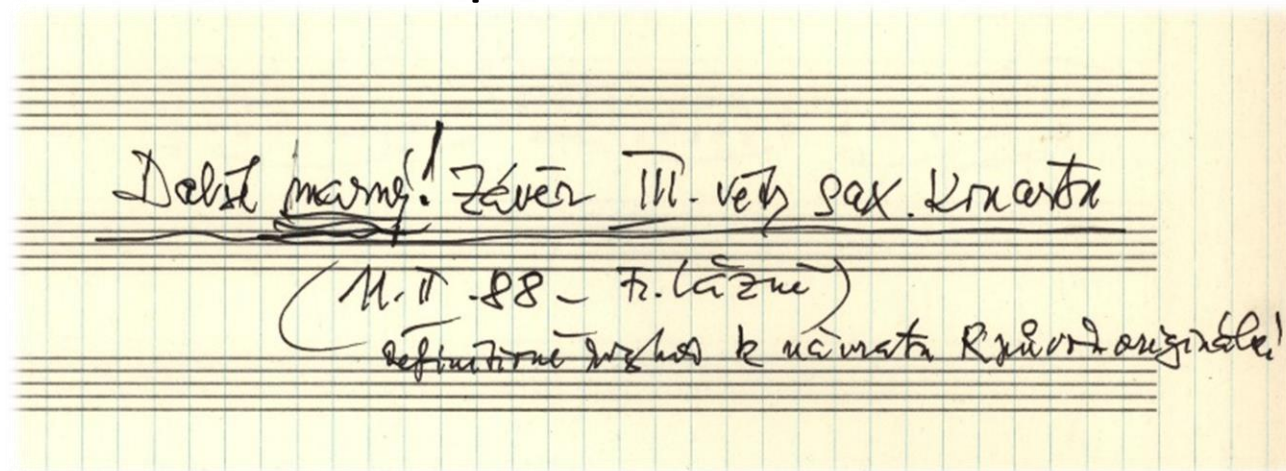 Další marný! Závěr III. věty sax. kvarteta
(11. II. 88 – Fr. Lázně)
definitivně k návratu k původ. originálu!